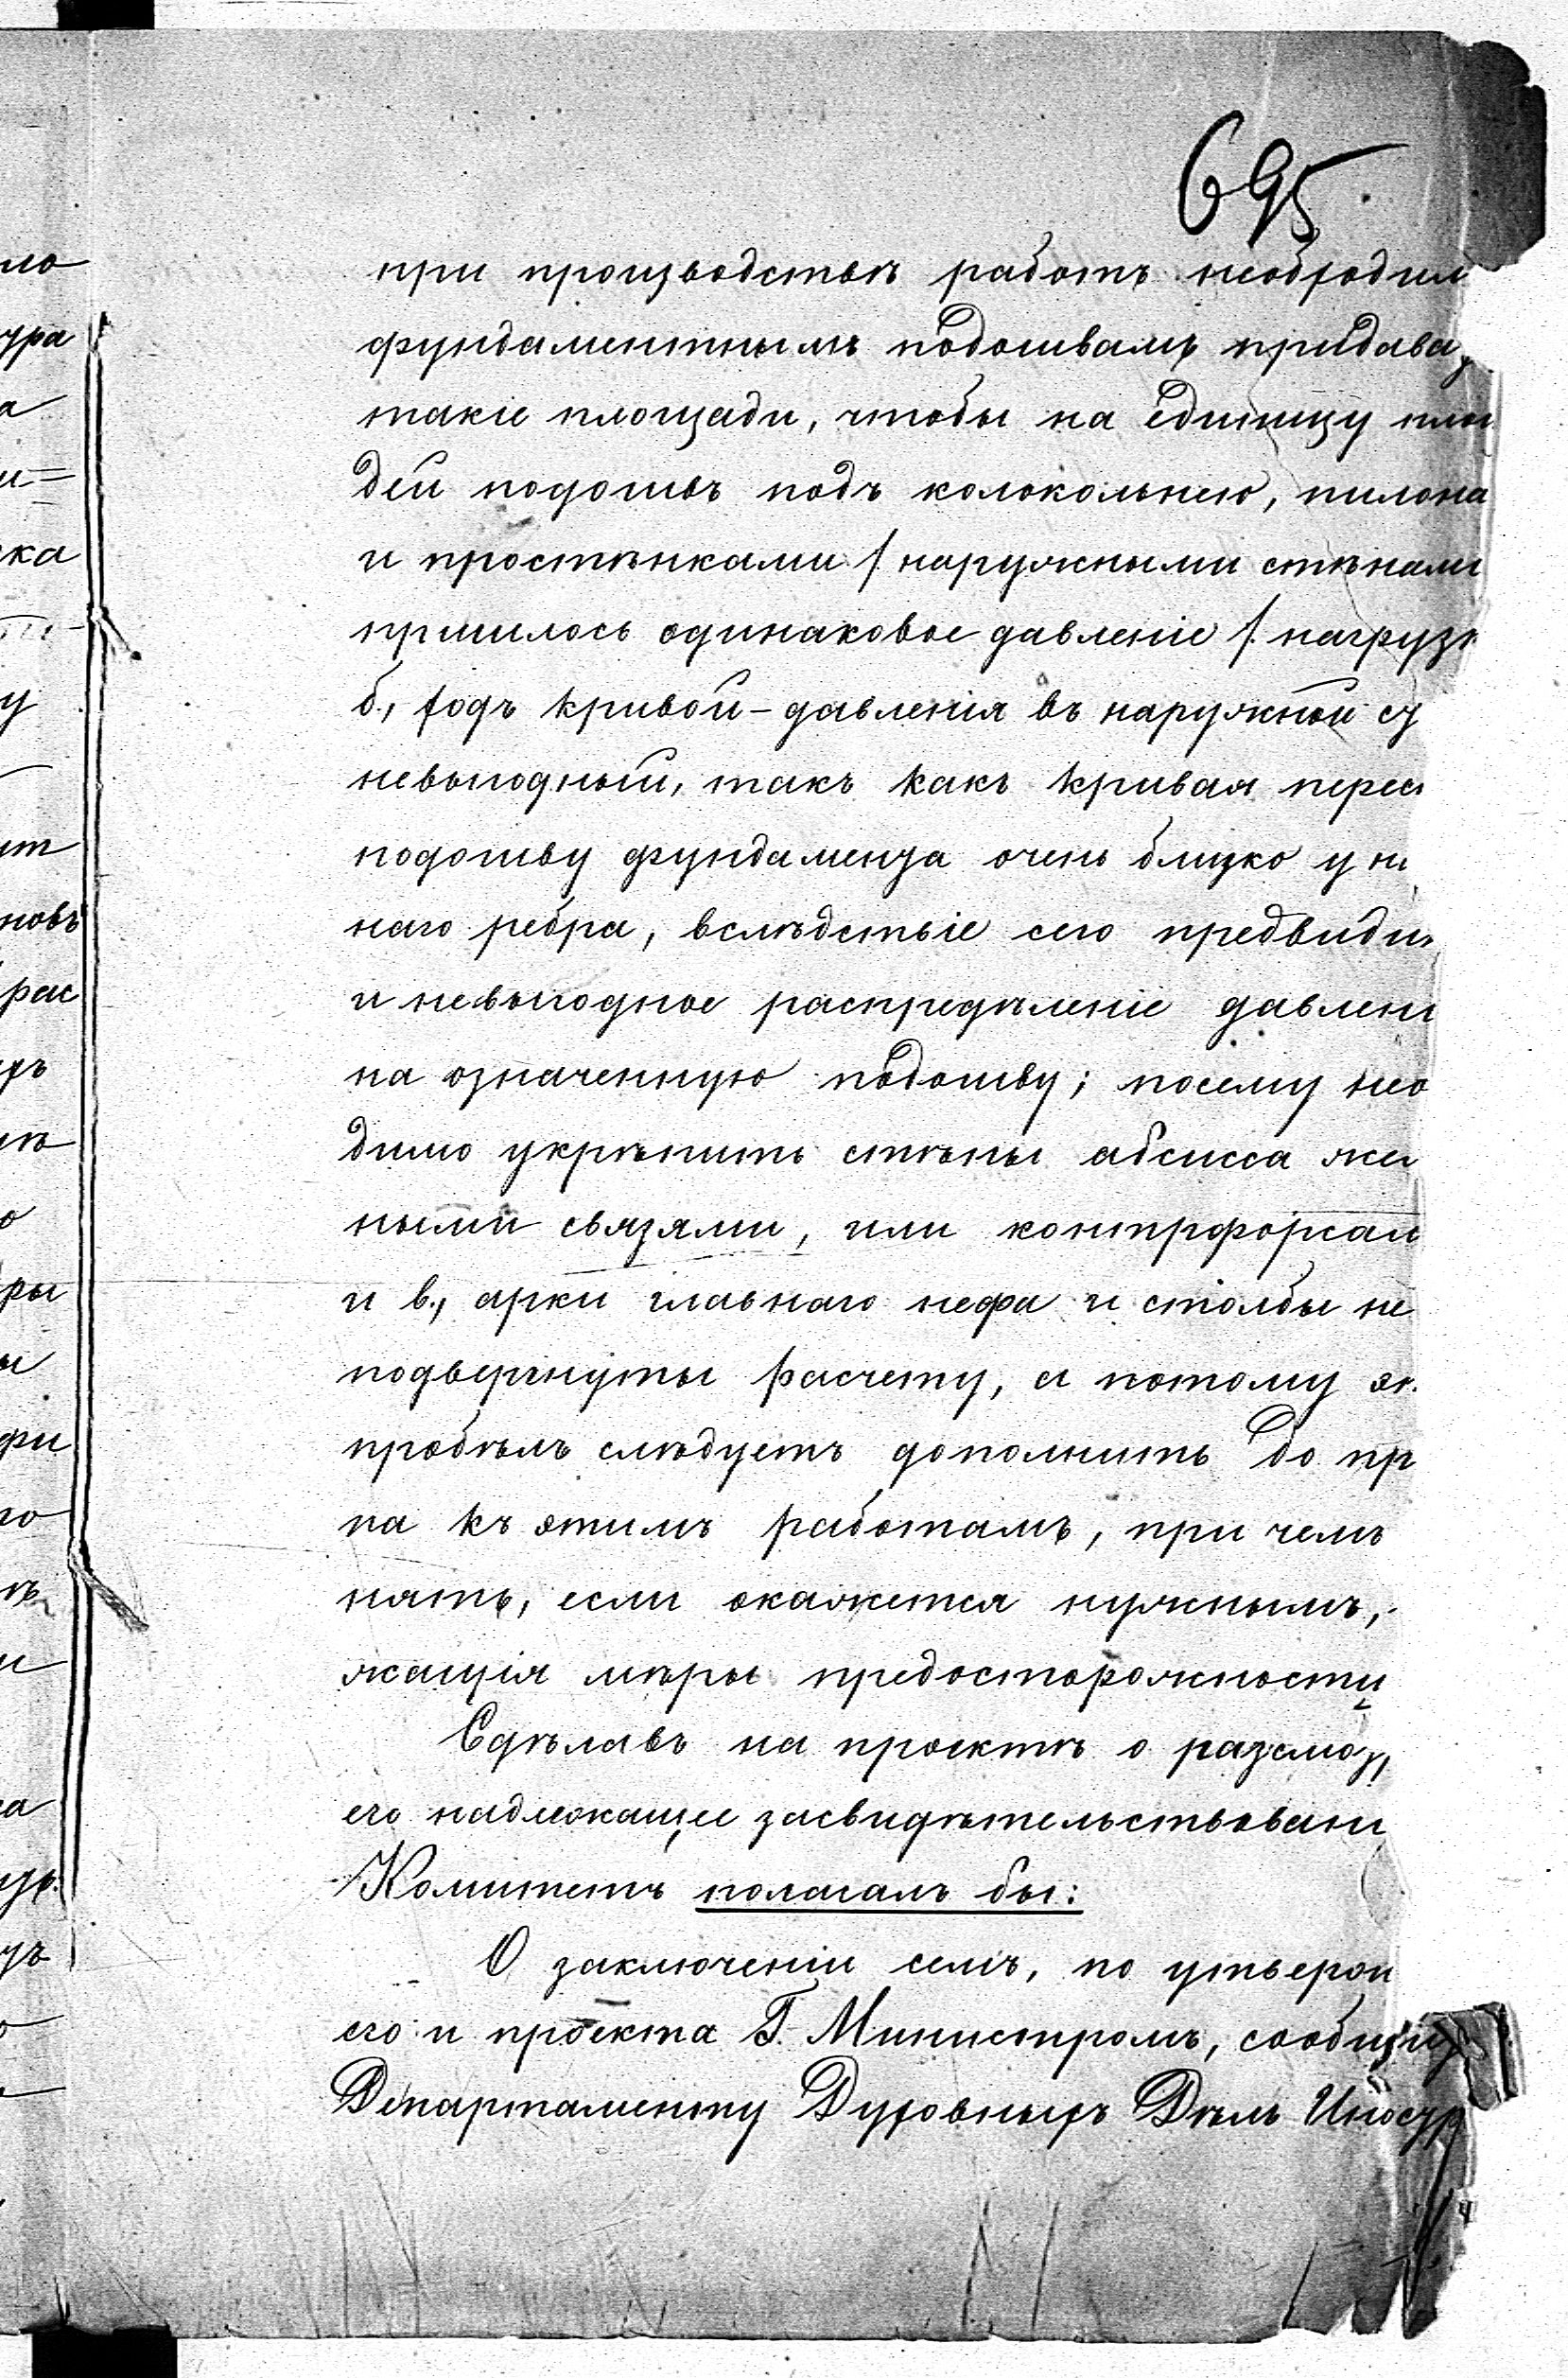 695
при производствѣ работъ необходим
фундаментнымъ подошвамъ придава
такіе площади, чтобы на единицу пло
дей подошвъ подъ колокольнею, пилона
и простѣнками / наружными стѣнами
пришлось одинаковое давленіе /. нагрузк
б., ходъ кривой-давленія въ наружной
невыгодный, такъ какъ кривая перес
подошву фундамента очень близко у
наго ребра, вслѣдствіе сего предвиди
и невыгодное распредѣленіе давлени
на означенную подошву; посему нео
димо укрѣпить стѣны абсисса
ными связями, или контрфорсам
и в., арки главнаго нефа и столбы не
подвергнуты расчету, а потому
пробѣлъ слѣдуетъ дополнить до пр
па къ этимъ работамъ, при чемъ
нять, если окажется нужнымъ,
жащія мѣры предосторожности
Сдѣлавъ на проектѣ о разсмо
его надлежащее засвидѣтельствовані
Комитетъ полагалъ бы:
О заключеніи семъ, по утверж
его и проекта Г. Министромъ, сообщи
Департаменту Духовныхъ Дѣлъ Иностр